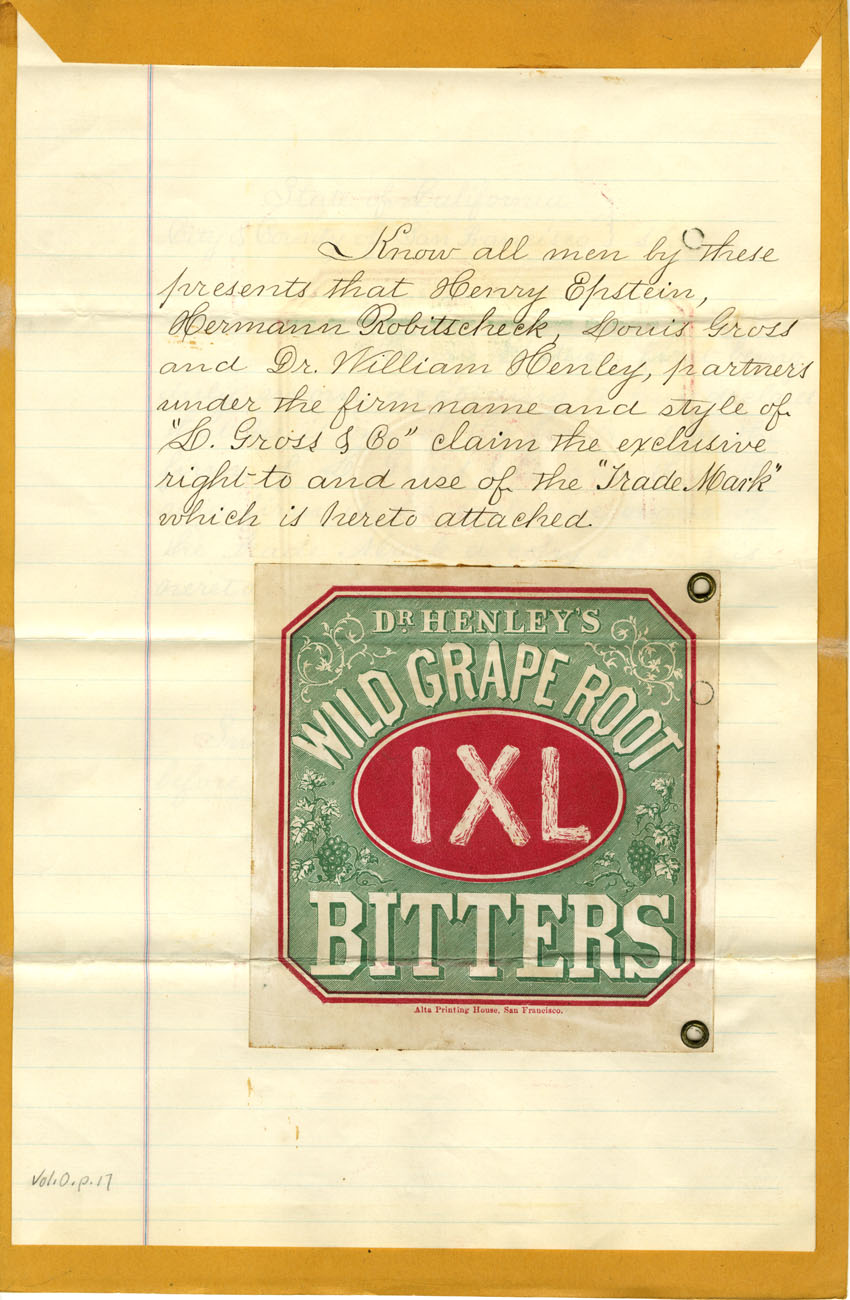 State of California
Know all men by these
presents that Henry Epstein,
Hermann Robitscheck, Louis Gross
and Dr. William Henley, partners
under the firm name and style of
"L. Gross & Co" claim the exclusive
right to and use of the "Trade Mark"
which is hereto attached.
DR HENLEY'S
WILD GRAPE ROOT
IXL
BITTERS
Alta Printing House, San Francisco.
Vol. O. p. 17